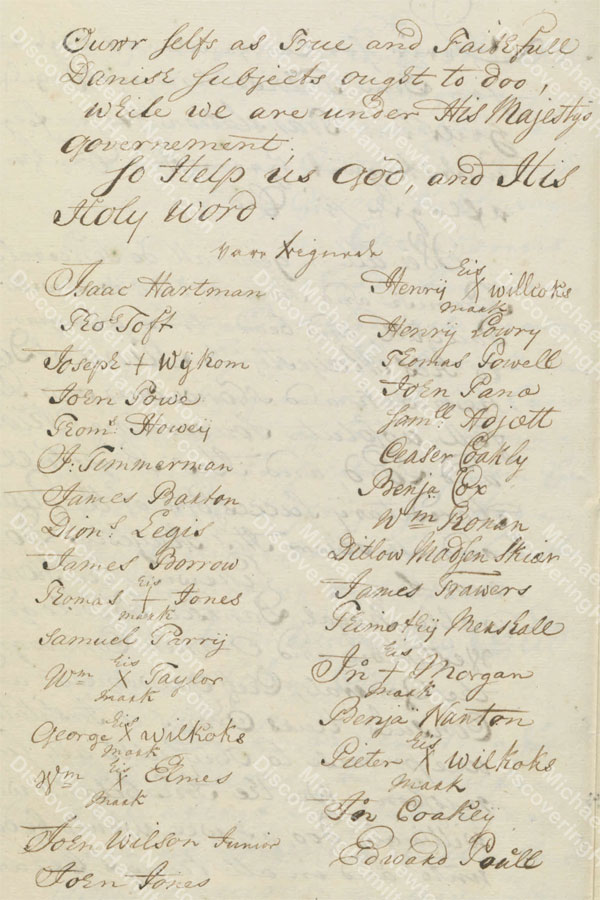 Ourr selfs as True and Faithfull
Danish subjects ought to doo,
while we are under His Majestys
Governement.
So Help us God, and His
Holy Word.
Isaac Hartman
Tho Toft
Joseph + Wykom
John Powe
Thoms Howey
J: Timmerman
James Barton
Dions Legis
James Borrow
Thomas his + mark Jones
Samuel Parrij
Wm his X mark Taylor
George his X mark Wilkoks
Wm his X mark Elmes
John Wilson Junior
John Jones
Henrij his X mark Willcoks
Henrij Lowry
Thomas Powell
John Pana
Samll Adjcott
Ceaser Coakly
Benja Cox
Wm Ronan
Ditlow Madsen Skiær
James Trawers
Thimothij Mershall
Jno his + mark Morgan
Benja Nanton
Pieter his X mark Wilkoks
Jno Coakley
Edward Poull